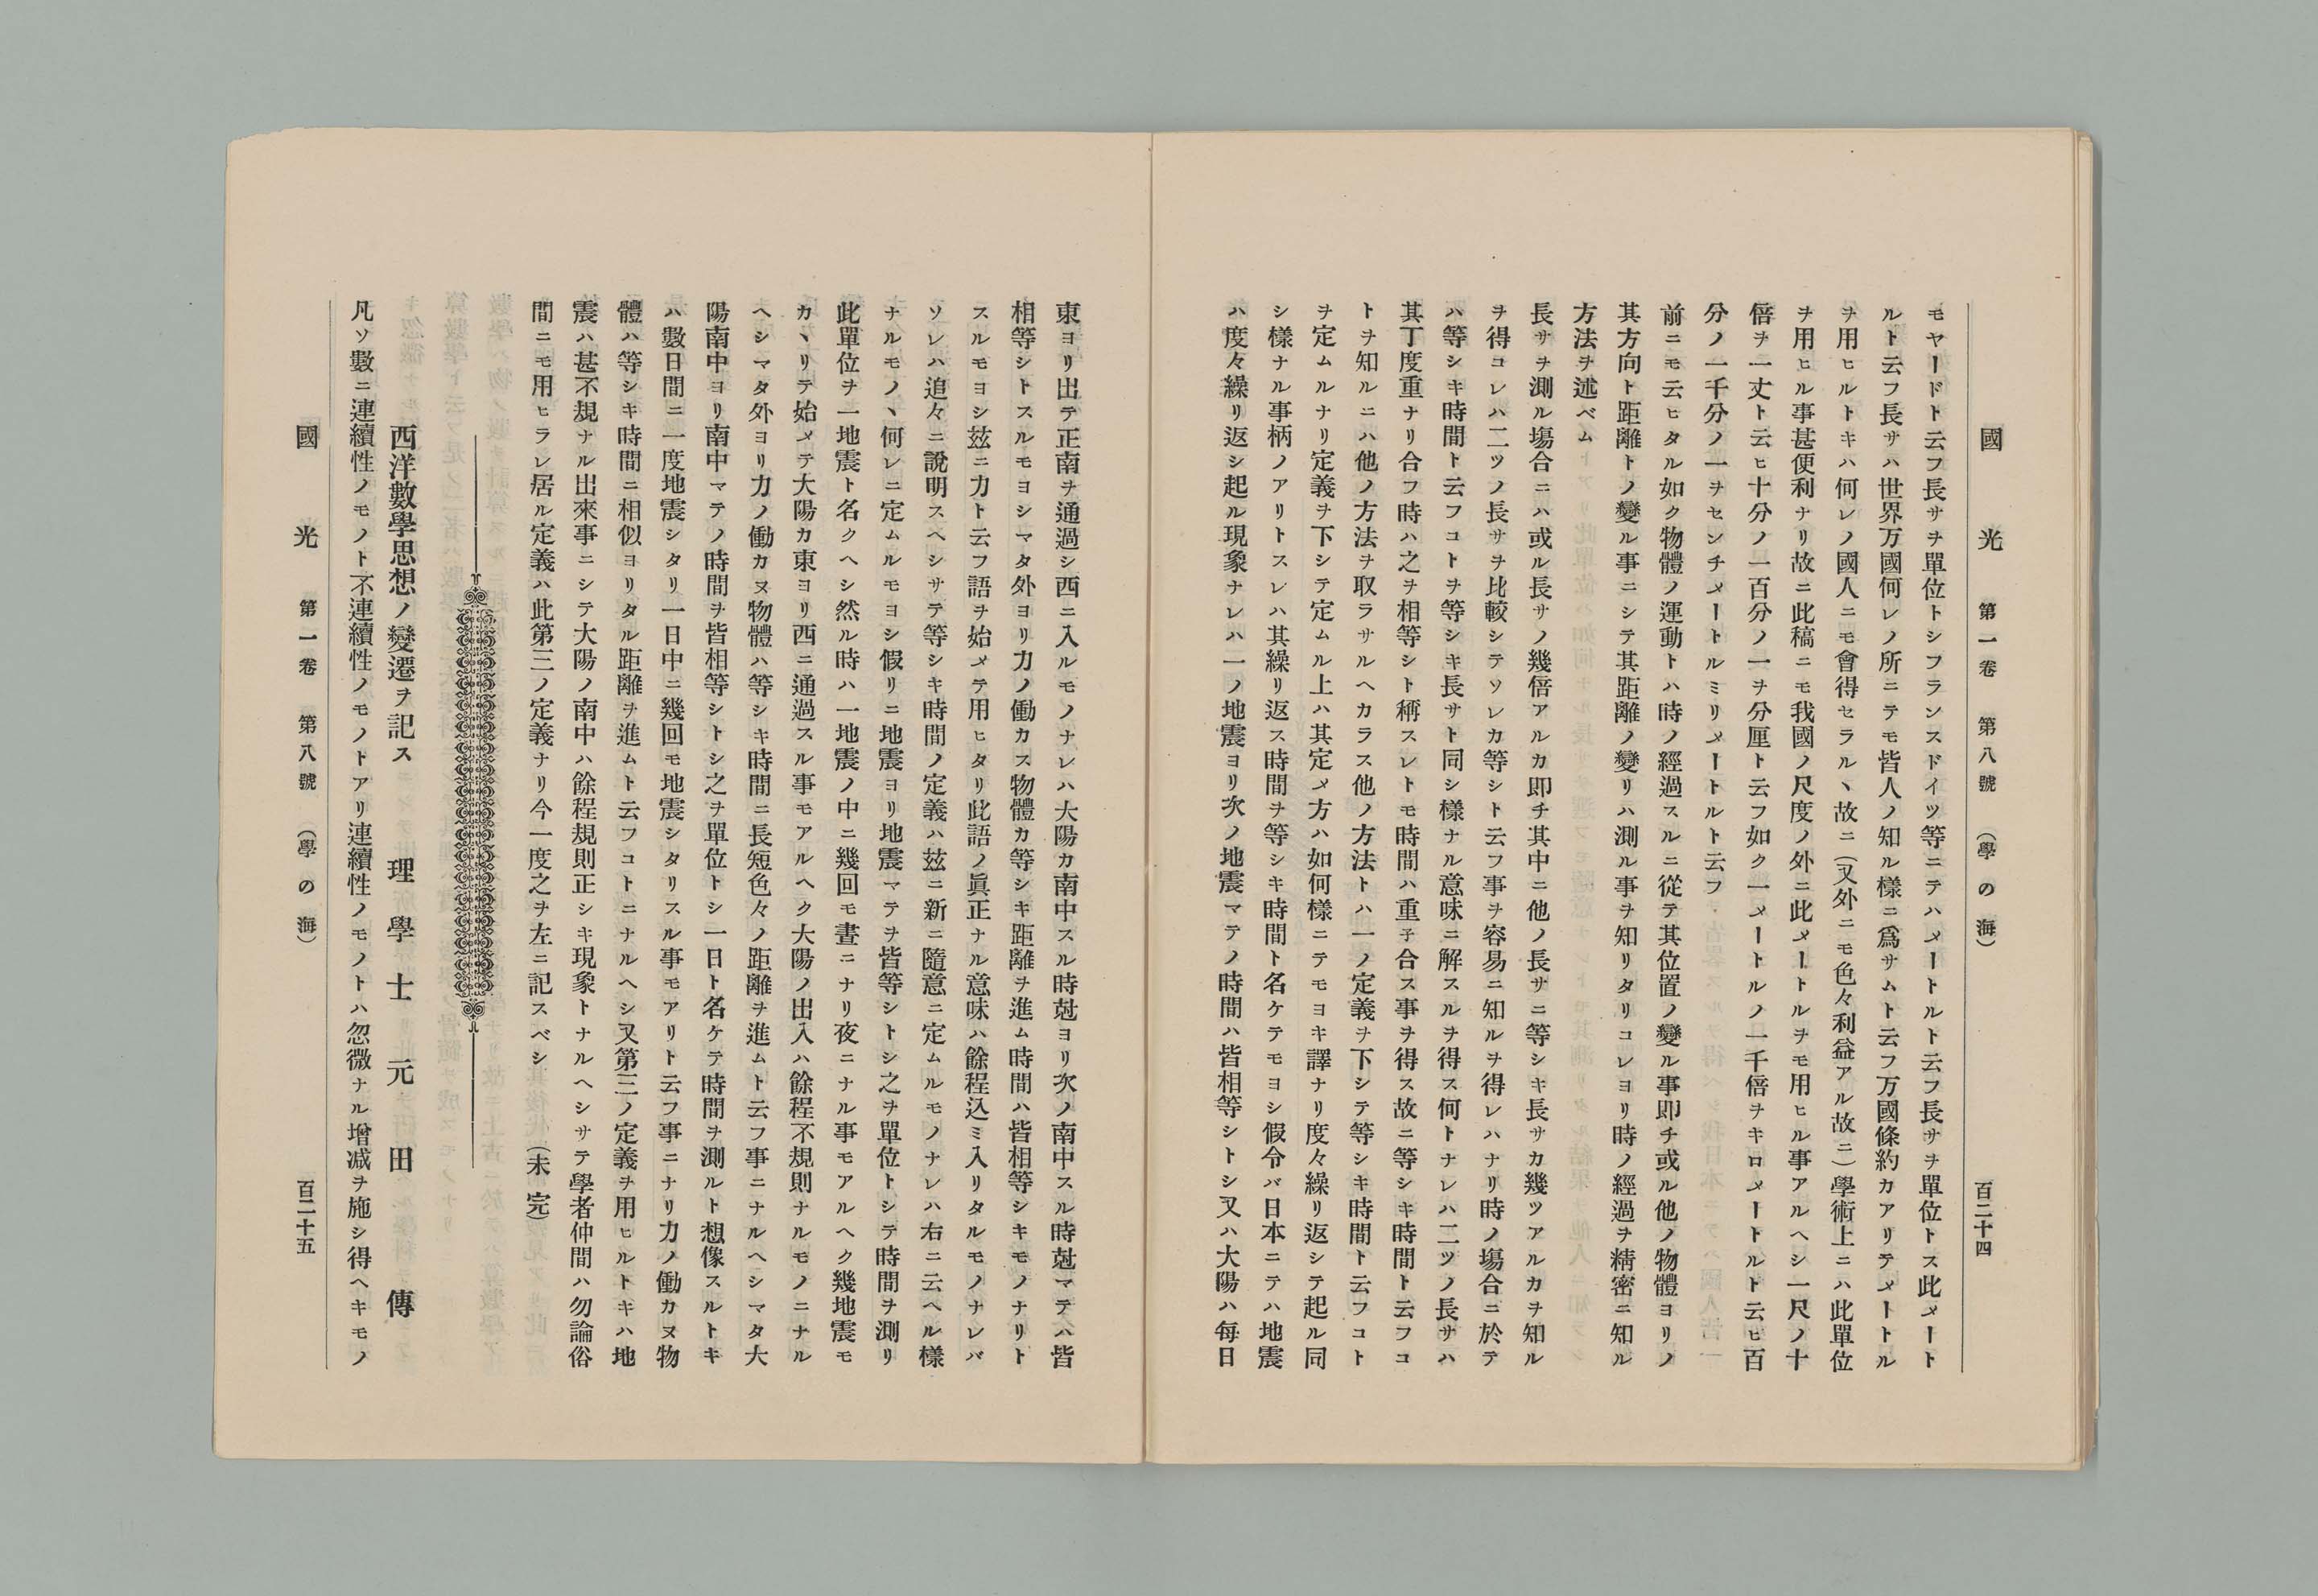 國光 第一卷 第八號 (學の海) 百二十四
モヤードト云フ長サヲ單位トシフランスドイツ等ニテハメートルト云フ長サヲ單位トス此メート
ルト云フ長サハ世界万國何レノ所ニテモ皆人ノ知ル樣ニ爲サムト云フ万國條約カアリテメートル
ヲ用ヒルトキハ何レノ國人ニモ會得セラルヽ故ニ(又外ニモ色々利益アル故ニ)學術上ニハ此單位
ヲ用ヒル事甚便利ナリ故ニ此稿ニモ我國ノ尺度ノ外ニ此メートルヲモ用ヒル事アルヘシ一尺ノ十
倍ヲ一丈ト云ヒ十分ノ一百分ノ一ヲ分厘ト云フ如ク一メートルノ一千倍ヲキロメートルト云ヒ百
分ノ一千分ノ一ヲセンチメートルミリメートルト云フ
前ニモ云ヒタル如ク物體ノ運動トハ時ノ經過スルニ從テ其位置ノ變ル事即チ或ル他ノ物體ヨリノ
其方向ト距離トノ變ル事ニシテ其距離ノ變リハ測ル事ヲ知リタリコレヨリ時ノ經過ヲ精密ニ知ル
方法ヲ述ベム
長サヲ測ル塲合ニハ或ル長サノ幾倍アルカ即チ其中ニ他ノ長サニ等シキ長サカ幾ツアルカヲ知ル
ヲ得コレハ二ツノ長サヲ比較シテソレカ等シト云フ事ヲ容易ニ知ルヲ得レハナリ時ノ塲合ニ於テ
ハ等シキ時間ト云フコトヲ等シキ長サト同シ樣ナル意味ニ解スルヲ得ス何トナレハ二ツノ長サハ
其丁度重ナリ合フ時ハ之ヲ相等シト稱スレトモ時間ハ重子合ス事ヲ得ス故ニ等シキ時間ト云フコ
トヲ知ルニハ他ノ方法ヲ取ラサルヘカラス他ノ方法トハ一ノ定義ヲ下シテ等シキ時間ト云フコト
ヲ定ムルナリ定義ヲ下シテ定ムル上ハ其定メ方ハ如何樣ニテモヨキ譯ナリ度々繰リ返シテ起ル同
シ樣ナル事柄ノアリトスレハ其繰リ返ス時間ヲ等シキ時間ト名ケテモヨシ假令バ日本ニテハ地震
ハ度々繰リ返シ起ル現象ナレハ一ノ地震ヨリ次ノ地震マテノ時間ハ皆相等シトシ又ハ大陽ハ毎日
東ヨリ出テ正南ヲ通過シ西ニ入ルモノナレハ大陽カ南中スル時尅ヨリ次ノ南中スル時尅マテハ皆
相等シトスルモヨシマタ外ヨリ力ノ働カス物體カ等シキ距離ヲ進ム時間ハ皆相等シキモノナリト
スルモヨシ玆ニ力ト云フ語ヲ始メテ用ヒタリ此語ノ眞正ナル意味ハ餘程込ミ入リタルモノナレバ
ソレハ追々ニ說明スヘシサテ等シキ時間ノ定義ハ玆ニ新ニ隨意ニ定ムルモノナレハ右ニ云ヘル樣
ナルモノヽ何レニ定ムルモヨシ假リニ地震ヨリ地震マテヲ皆等シトシ之ヲ單位トシテ時間ヲ測リ
此單位ヲ一地震ト名クヘシ然ル時ハ一地震ノ中ニ幾回モ晝ニナリ夜ニナル事モアルヘク幾地震モ
カヽリテ始メテ大陽カ東ヨリ西ニ通過スル事モアルヘク大陽ノ出入ハ餘程不規則ナルモノニナル
ヘシマタ外ヨリ力ノ働カヌ物體ハ等シキ時間ニ長短色々ノ距離ヲ進ムト云フ事ニナルヘシマタ大
陽南中ヨリ南中マテノ時間ヲ皆相等シトシ之ヲ單位トシ一日ト名ケテ時間ヲ測ルト想像スルトキ
ハ數日間ニ一度地震シタリ一日中ニ幾回モ地震シタリスル事モアリト云フ事ニナリ力ノ働カヌ物
體ハ等シキ時間ニ相似ヨリタル距離ヲ進ムト云フコトニナルヘシ又第三ノ定義ヲ用ヒルトキハ地
震ハ甚不規ナル出來事ニシテ大陽ノ南中ハ餘程規則正シキ現象トナルヘシサテ學者仲間ハ勿論俗
間ニモ用ヒラレ居ル定義ハ此第三ノ定義ナリ今一度之ヲ左ニ記スベシ (未完)
西洋數學思想ノ變遷ヲ記ス 理學士 元田 傳
凡ソ數ニ連續性ノモノト不連續性ノモノトアリ連續性ノモノトハ忽微ナル增減ヲ施シ得ヘキモノ
國光 第一卷 第八號 (學の海) 百二十五